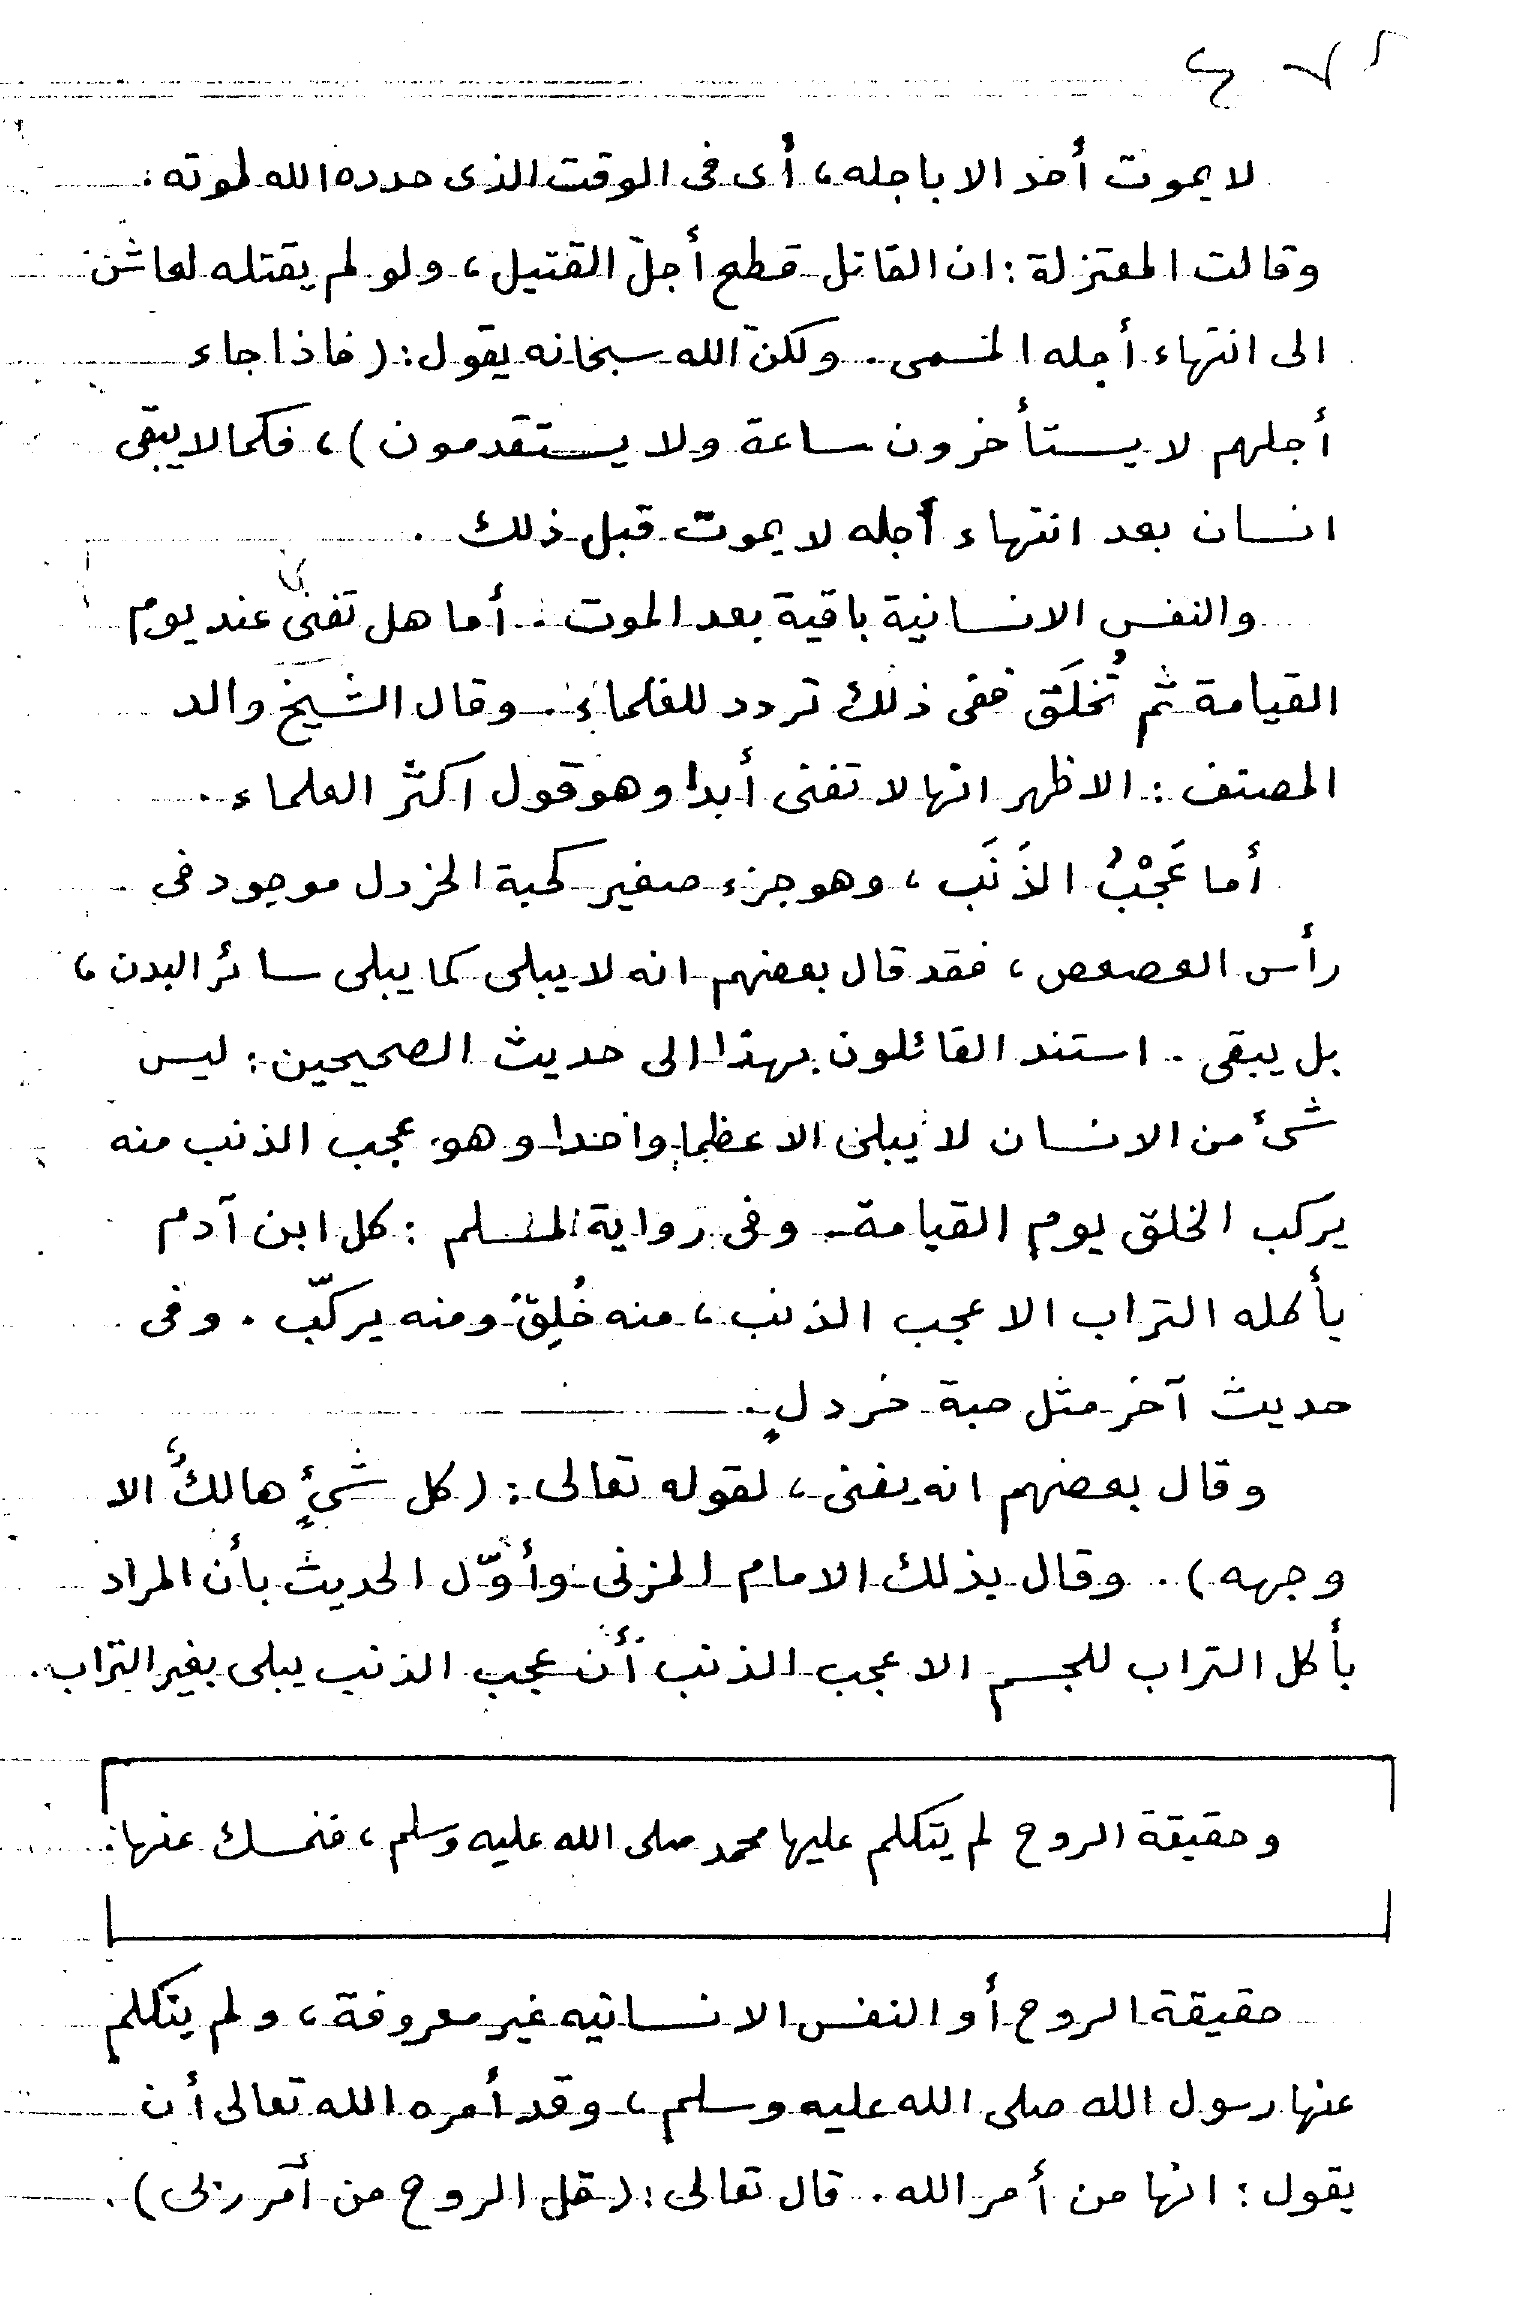 لا يموت أحد الا باجله، أى فى الوقت الذى حدده الله لموته.
وقالت المعتزلة: ان القاتل قطع أجل القتيل، ولو لم يقتله لعاش
الى انتهاء أجله المسمى. ولكنّ الله سبحانه يقول: (فاذا جاء
أجلهم لا يستأخرون ساعة ولا يستقدمون)، فكما لا يبقى
انسان بعد انتهاء أجله لا يموت قبل ذلك.
والنفس الانسانية باقية بعد الموت. أما هل تفنى عند يوم
القيامة ثم تُخلَق ففى ذلك تردد للعلماء. وقال الشيخ والد
المصنف: الاظهر انها لا تفنى أبدا وهو قول اكثر العلماء.
أما عَجْبُ الذَنَب، وهو جزء صغير كحبة الخردل موجود فى
رأس العصعص، فقد قال بعضهم انه لا يبلى كما يبلى سائر البدن،
بل يبقى. استند القائلون بهذا الى حديث الصحيحين: ليس
شىء من الانسان لا يبلى الا عظما واحدا وهو عجب الذنب منه
يركب الخلق يوم القيامة. وفى رواية لمسلم: كل ابن آدم
يأكله التراب الا عجب الذنب، منه خُلِقَ ومنه يركّب. وفى
حديث آخر مثل حبة خردلٍ.
وقال بعضهم انه يفنى، لقوله تعالى: (كل شىءٍ هالكٌ الا
وجهه). وقال بذلك الامام المزنى وأوّل الحديث بأن المراد
بأكل التراب للجسم الا عجب الذنب أن عجب الذنب يبلى بغير التراب.
وحقيقة الروح لم يتكلم عليها محمد صلى الله عليه وسلم، فنمسك عنها.
حقيقة الروح أو النفس الانسانيه غير معروفة، ولم يتكلم
عنها رسول الله صلى الله عليه وسلم، وقد أمره الله تعالى أن
يقول: انها من أمر الله. قال تعالى: (قل الروح من أمر ربى).